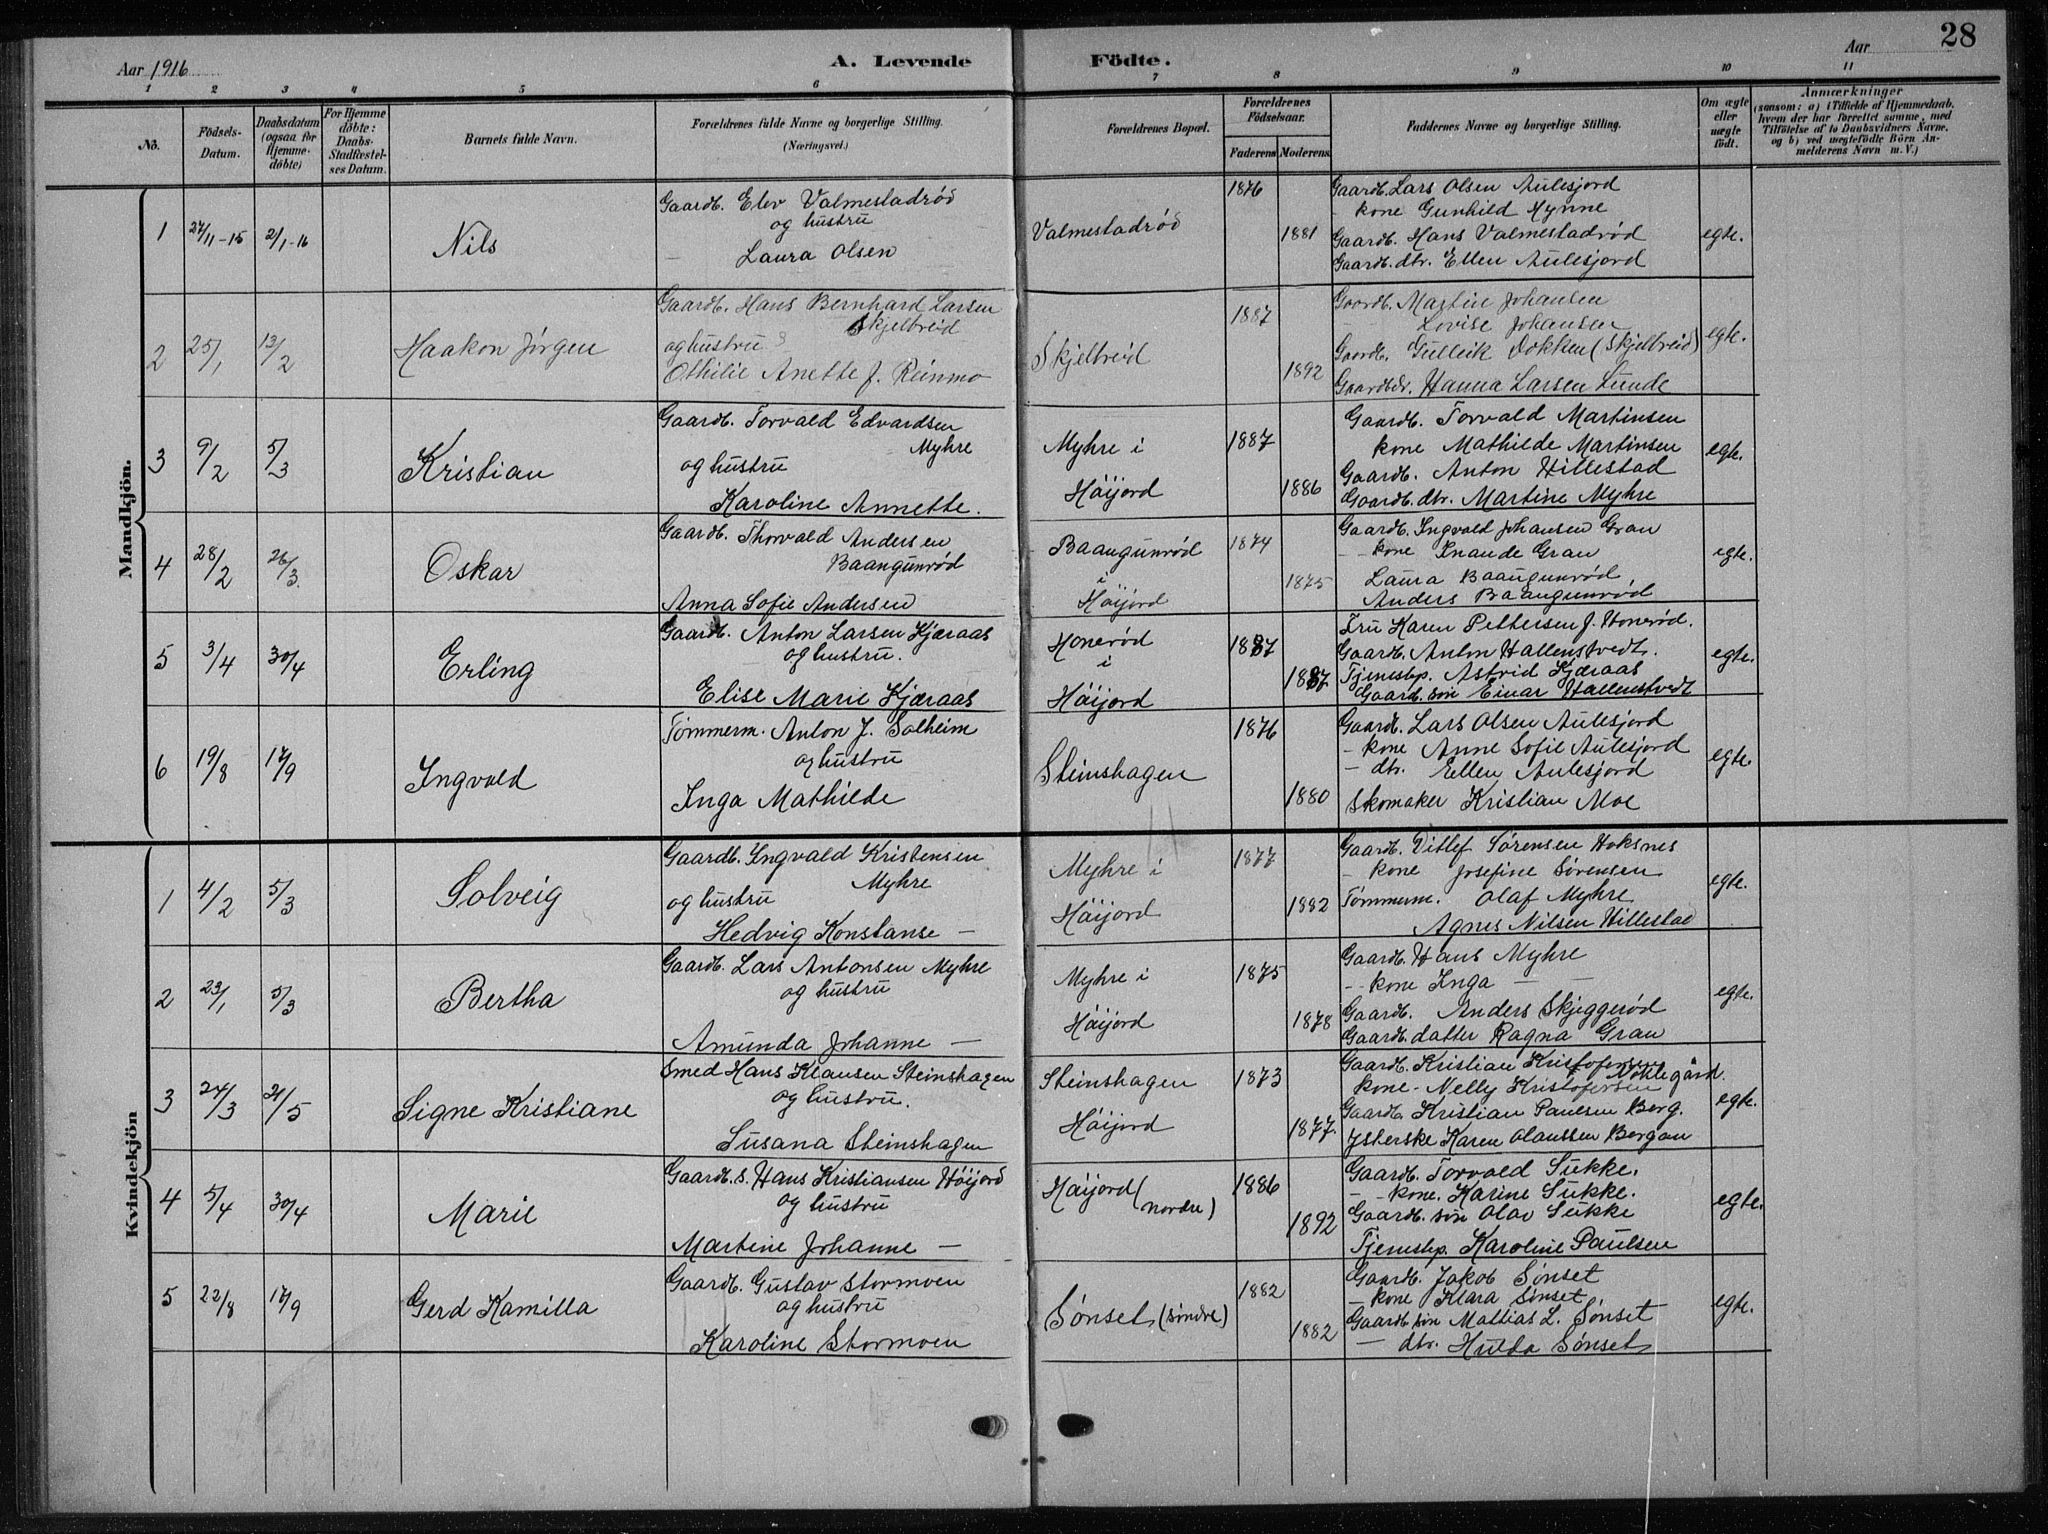 28
Aar 1916
A. Levende Födte.
Aar
1 2 3 4 5 6 7 8 9 10 11
No.
Födsels-Datum.
Daabsdatum (ogsaa for Hjemmedöbte)
For Hjemmedöbte: Daabs-Stadfæstelses Datum.
Barnets fulde Navn.
Forældrenes fulde Navne og borgerlige Stilling.
(Næringsvei.)
Forældrenes Bopæl.
Forældrenes Födselsaar.
Faderens. Moderens.
Faddernes Navne og borgerlige Stilling.
Om ægte eller uægte födt.
Anmærkninger
(saasom: a) i Tilfælde af Hjemmedaab, hvem der har forrettet samme, med Tilföielse af to Daabsvidners Navne, og b) ved uægtefödte Börn Anmelderens Navn m. V.)
Mandkjön.
1 27/11-15 2/1-16 Nils
Gaardb. Elev Valmestadrød
og hustru
— Laura Olsen
Valmestadrød 1876 1881
Gaardb. Lars Olsen Aulesjord
- kone Gunhild Mynne
Gaardb. Hans Valmestadrød
Gaardb. dtr. Ellen Aulesjord
egte.
2 25/1 13/2 Haakon Jörgen
Gaardb. Hans Bernhard Larsen
Skjelbreid
og hustru
Othilie Anette J. Reinmo
Skjelbreid 1887 1892
Gaardb. Martin Johansen
Lovise Johansen
Gaardb. Gullik Dokken (Skjelbreid)
Gaardbdr. Hanna Larsen Lunde
egte.
3 9/2 5/3 Kristian
Gaardb. Torvald Edvardsen
Myhre
og hustru
Karoline Annette.
Myhre i
Höijord 1887 1886
Gaardb. Torvald Martinsen
kone Mathilde Martinsen
Gaardb. Anton Hillestad
Gaardb. dtr. Martine Myhre
egte.
4 28/2 26/3. Oskar
Gaardb. Thorvald Andersen
Baangunrød
Anna Sofie Andersen
Baangunrød
i
Höijord 1874 1875
Gaardb. Ingvald Johansen Gran
- - kone Gran
Laura Baangunrød
Anders Baangunrød
egte.
5 3/4 30/4 Erling
Gaardb. Anton Larsen Kjæraas
og hustru.
Elise Marie Kjæraas
Honerød
i
Höijord 1887 1887
Fru Karen Pettersen J. Honerød.
Gaardb. Anton Hallenstvedt.
Tjenestp. Astrid Kjæraas
Gaardb. sön Einar Hallenstvedt
egte.
6 19/8 17/9 Ingvald
Tömmerm. Anton J. Solheim
og hustru
Inga Mathilde
Steinshagen 1876 1880
Gaardb. Lars Olsen Aulesjord
- kone Anne Sofie Aulesjord
— dtr. Ellen Aulesjord
Skomaker Kristian Moe
egte.
Kvindekjön
1 4/2 5/3 Solveig
Gaardb. Ingvald Kristensen
Myhre
og hustru
Hedvig Konstanse —
Myhre i
Höijord 1877 1882
Gaardb. Ditlef Sørensen Hoksnes
- kone Josefine Sørensen
Tömmerm. Olaf Myhre
Agnes Nilsen Hillestad
egte.
2 23/1 5/3 Bertha
Gaardb. Lars Antonsen Myhre
og hustru
Amunda Johanne —
Myhre i
Höijord 1875 1878
Gaardb. Hans Myhre
- - kone Inga —
Gaardb. Anders Skjeggerød
Gaardb. datter Ragna Gran
egte.
3 24/3 21/5 Signe Kristiane
Smed Hans Klausen Steinshagen
og hustru.
Susana Steinshagen
Steinshagen
Höijord 1873 1877.
Gaardb. Kristian Kristofersen
kone - Nelly Kristofersen
Gaardb. Kristian Paulsen Berg.
Karen Olaussen Bergan
egte.
4 5/4 30/4 Marie
Gaardb. s. Hans Kristiansen Höijord
og hustru
Martine Johanne —
Höijord (nordre) 1886 1892
Gaardb. Torvald Sukke.
- - kone. Karine Sukke.
Gaardb. sön Olav Sukke
Tjenestp. Karoline Paulsen
egte.
5 22/8 17/9 Gerd Kamilla
Gaardb. Gustav Stormoen
og hustru
Karoline Stormoen
Sønset (søndre) 1882 1882
Gaardb. Jakob Sønset
- kone Klara Sønset.
Gaardb. sön Mattias L. Sønset
— dtr. Hulda Sønset
egte.